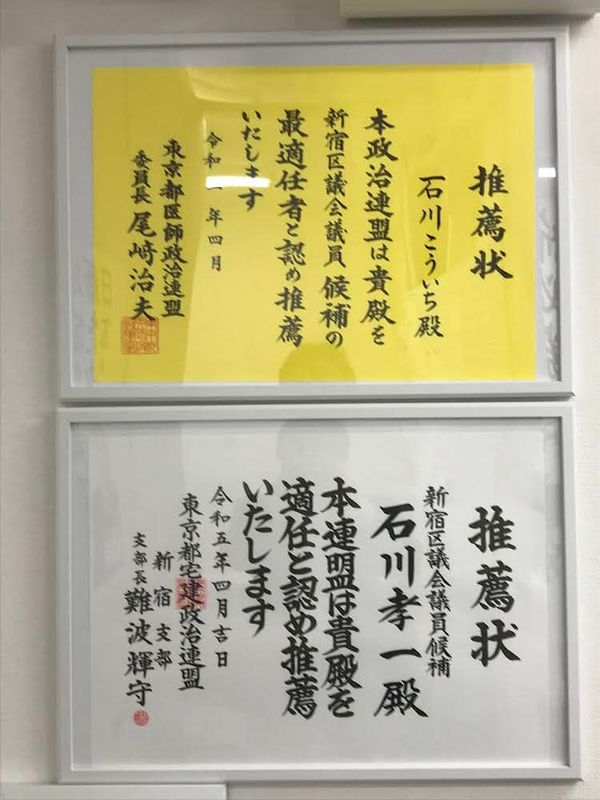 推薦状
石川こういち殿
本政治連盟は貴殿を
新宿区議会議員候補の
最適任者と認め推薦
いたします
令和 年四月
東京都医師政治連盟
委員長 尾﨑治夫
推薦状
新宿区議会議員候補
石川孝一殿
本連盟は貴殿を
適任と認め推薦
いたします
令和五年四月吉日
東京都宅建政治連盟
新宿支部
支部長 難波輝守